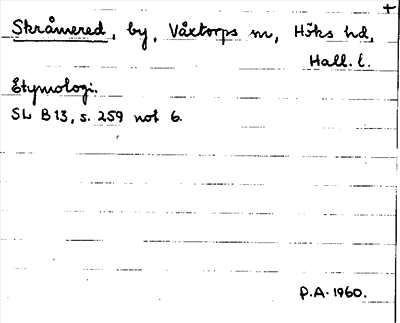 +
Skråmered, by, Våxtorps sn, Höks hd,
Hall. l.
Etymologi.
SL B13, s. 259 not 6.
P.A. 1960.